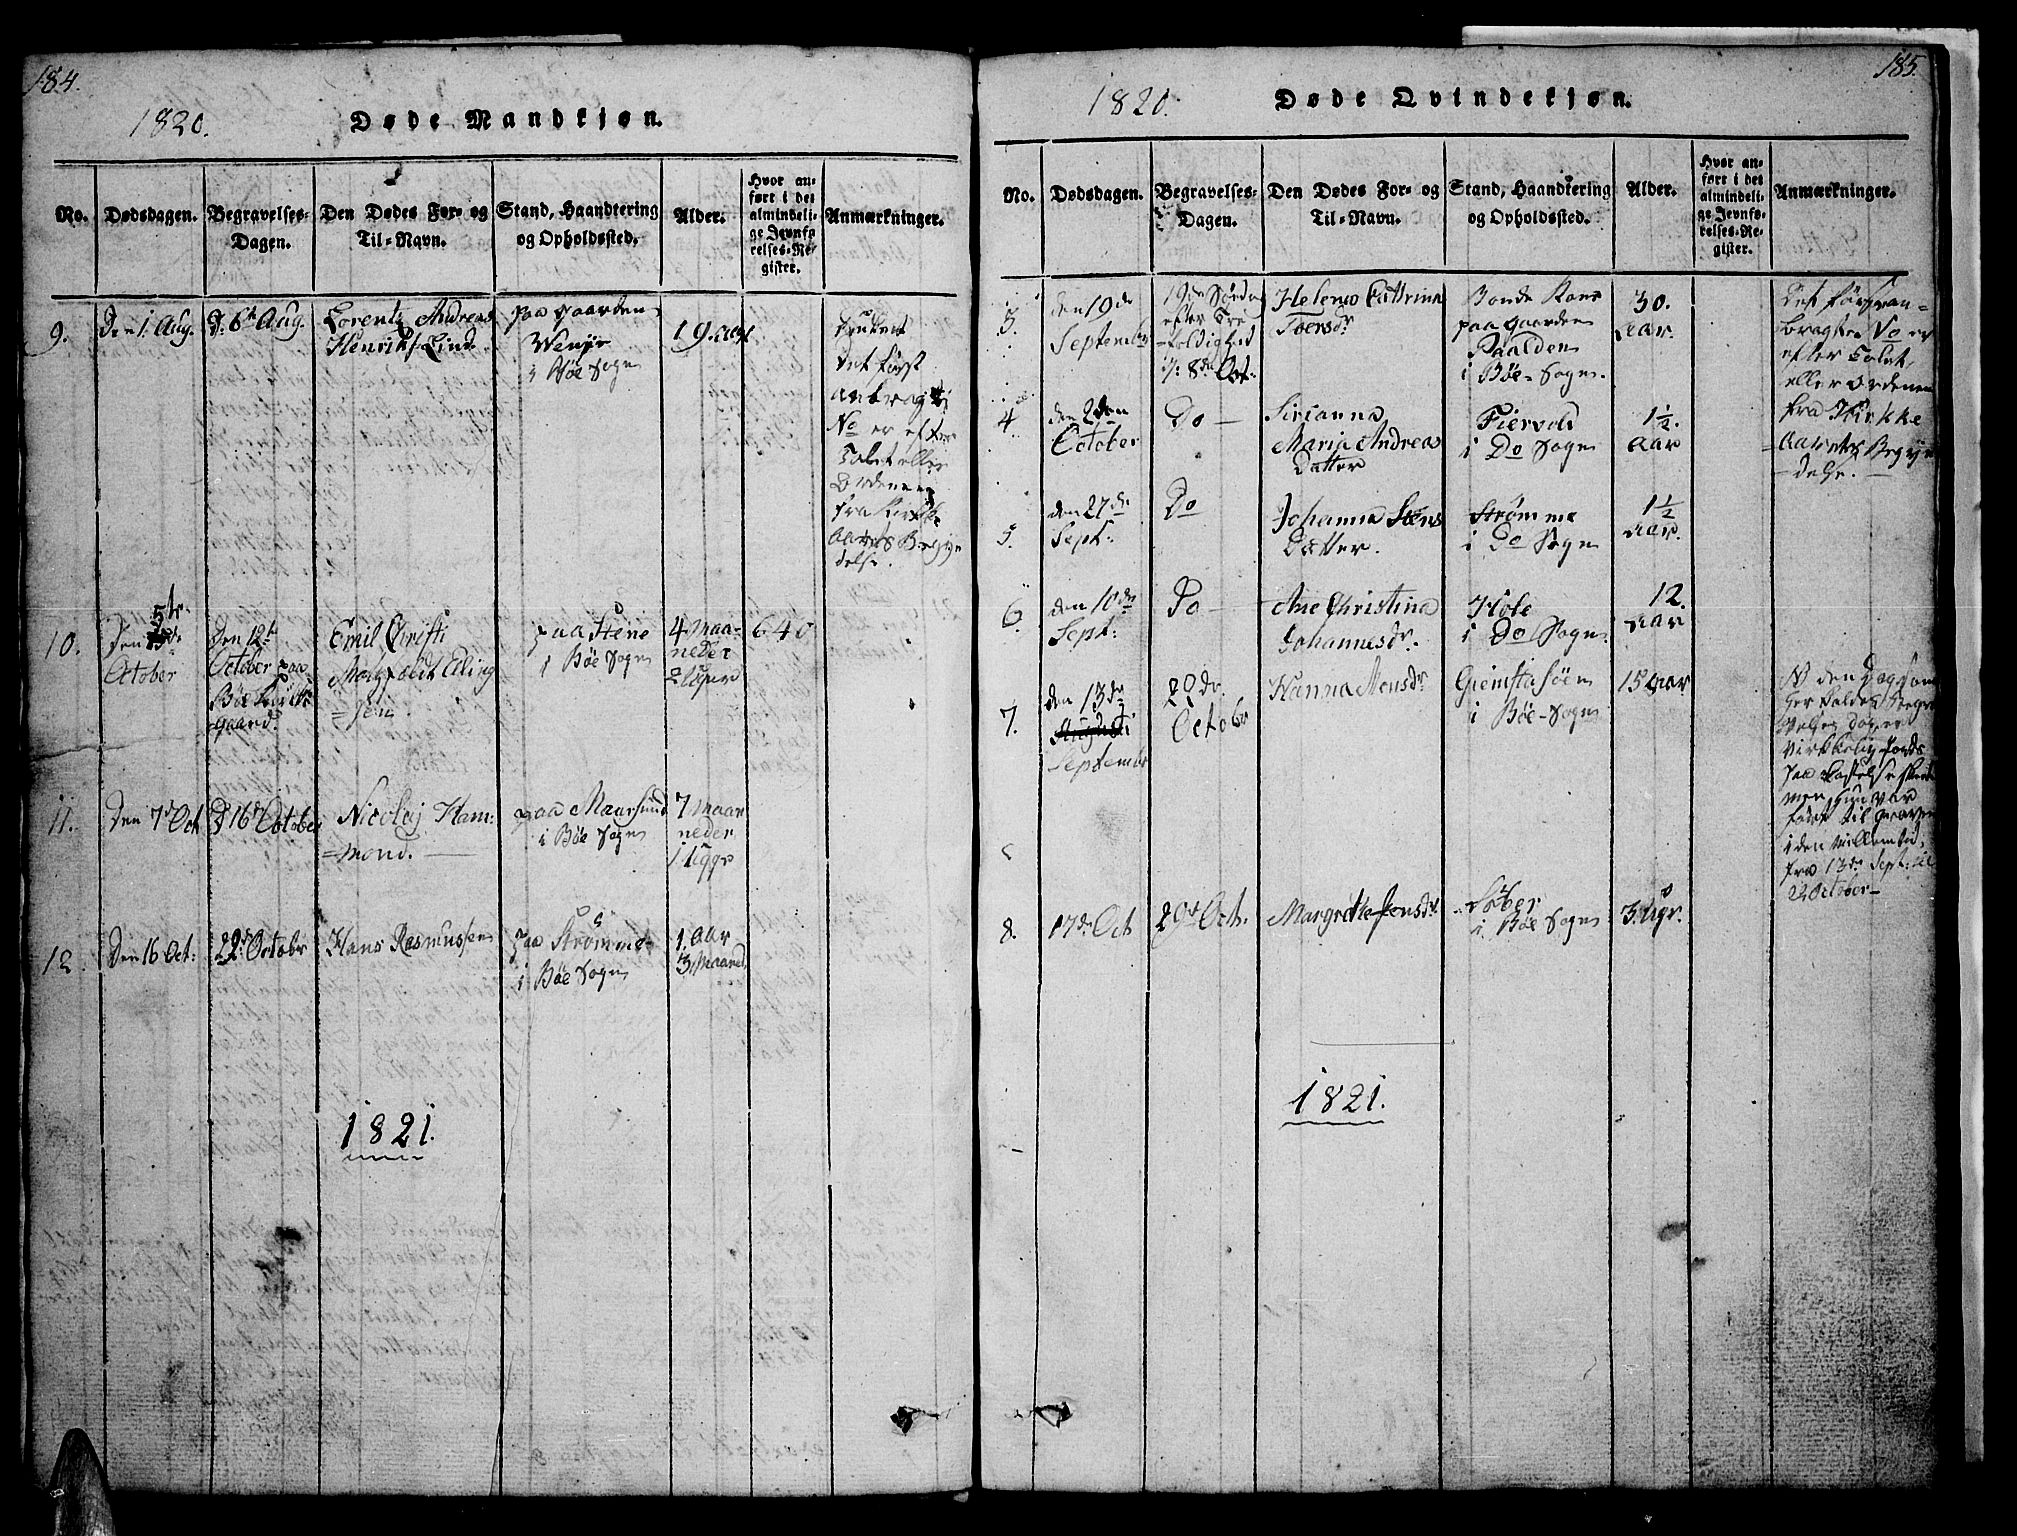 184.
1820.
Døde Mandkjøn.
No.
Dødsdagen.
Begravelses-
Dagen.
Den Dødes For- og
Til-Navn.
Stand, Haandtering
og Opholdssted.
Alder.
Hvor an-
ført i det
almindeli-
ge Jevnfø-
relses-Re-
gister.
Anmærkninger.
9.
Den 1. Aug.
d. 6te Aug.
Lorentz Andreas
Henrik Lind
paa gaarden
i Bøe Sogn
19. aar
det først
anbragte
No er efter
Talet eller
Ordenen
fra Kirke
Aarets Begyn
delse.
10.
Den 5te
October
Den 12te
October paa
Bøe Kirke
gaard.
Emil Christi
Elling
=sen.
paa Steine
i Bøe Sogn
4 Maa-
neder
640
11.
Den 7de Oct
d 16de October
Nicolaj Ham-
=mond.
paa Maarsund
i Bøe Sogn
7 Maa
neder
1 Uge
12.
Den 16 Oct:
22de Octobr
Hans Rasmussen
paa Strømme
i Bøe Sogn
1. Aar
3 Maaned.
1821.
185.
1820.
Døde Qvindekjøn.
No.
Dødsdagen.
Begravelses-
Dagen.
Den Dødes For- og
Til-Navn.
Stand, Haandtering
og Opholdssted.
Alder.
Hvor an-
ført i det
almindeli-
ge Jevnfø-
relses-Re-
gister.
Anmærkninger.
3.
den 19de
September
19de Søndag
efter Tre
=foldighed
8de Oct.
Helene Cathrina
Toersdr
Bonde Kone
paa Gaarden
i Bøe-Sogn.
30.
aar.
Det først an-
bragte No er
efter Talet,
eller Ordenen
fra Kirke
Aarets Begyn
delse.
4
den 2den
October
Do
Sirianna
Maria Andreas
Datter
Fiervoll
i Do Sogn
1½.
aar
5.
den 27de
Sept:
Do
Johanna Stens
Datter.
Strømme
i Do Sogn
1½
aar.
6.
den 10de
Sept:
Do
Ane Christina
Johannesdr.
Hole
i Do Sogn.
12.
aar
7.
den 13de
September
22de
Octobr
Hanna
i Bøe-Sogn
15 aar
N den Dag som
her
virkelig Jords
paa
men hun var
ført til graven
i den mellemtid,
fra 13de Sept: til
22 October
8.
17de Oct
29de Oct.
Margrethe Jensdr.
i Bøe Sogn
3 Ugr.
1821.